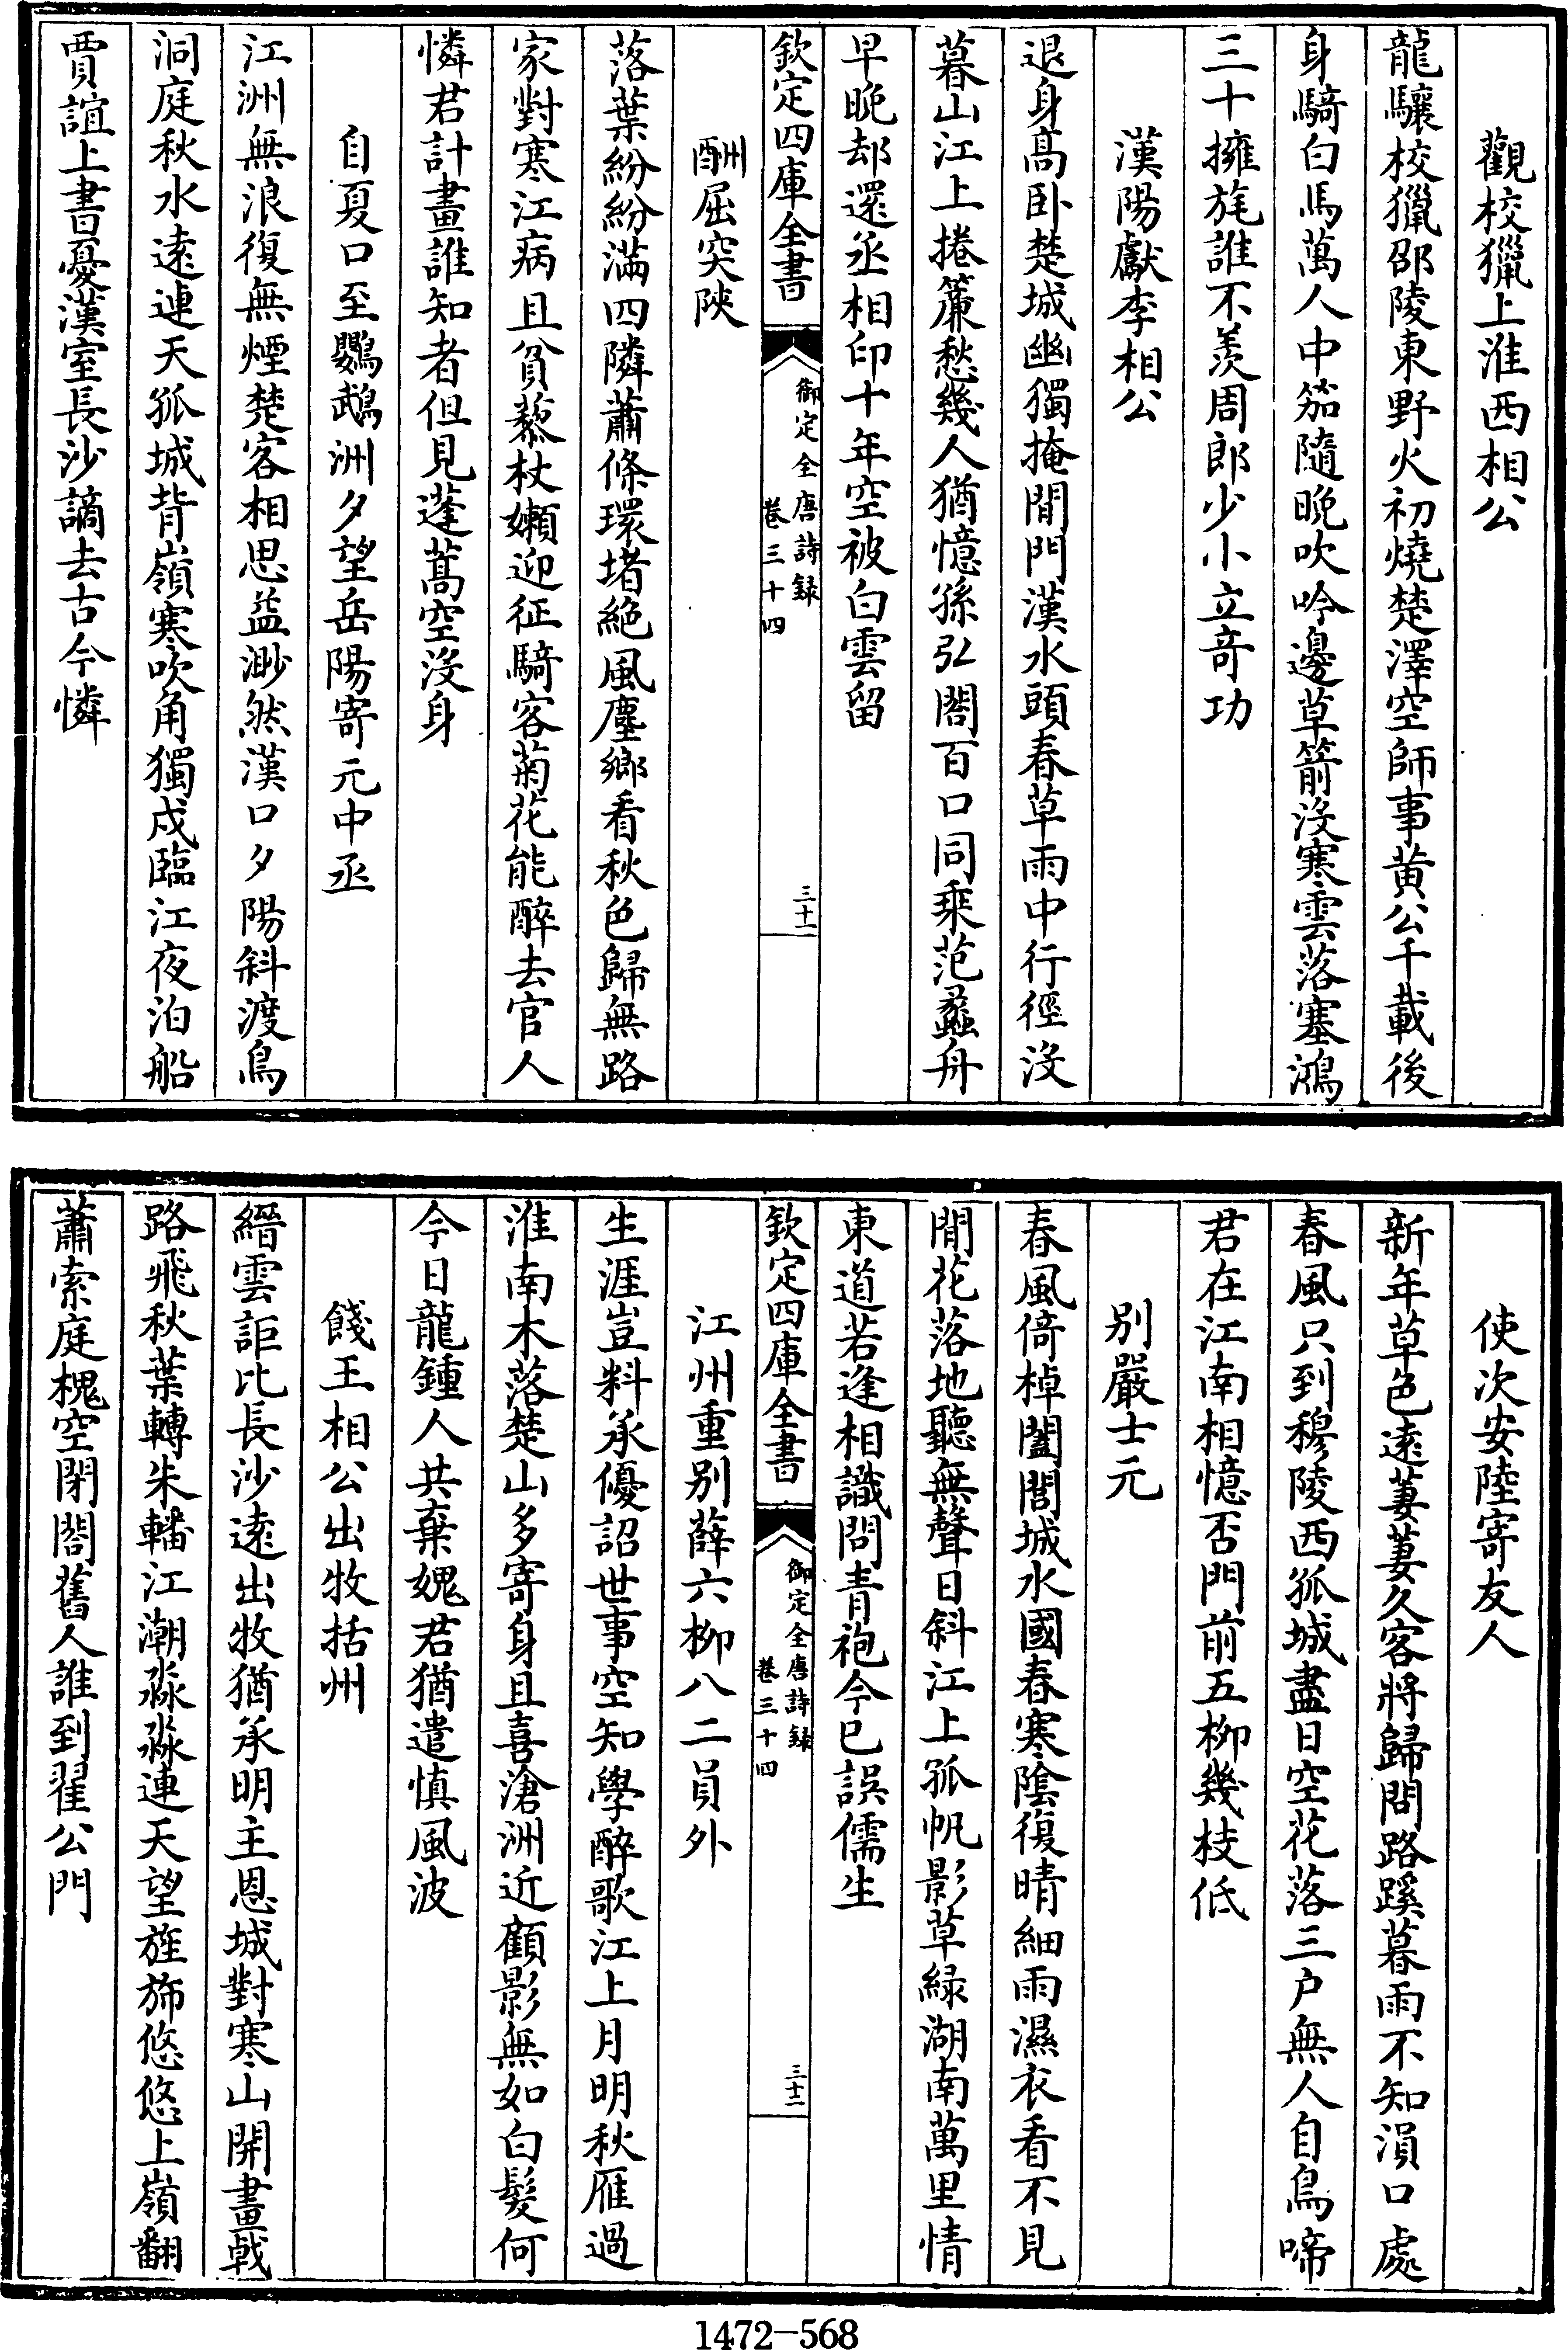 觀校獵上淮西相公
龍驤校獵邵陵東野火初燒楚澤空師事黄公千載後
身騎白馬萬人中笳隨晚吹吟邊草箭沒寒雲落塞鴻
三十擁旄誰不羨周郎少小立竒功
漢陽獻李相公
退身髙卧楚城幽獨掩閒門漢水頭春草雨中行徑沒
暮山江上捲簾愁幾人猶憶孫弘閤百口同乗范蠡舟
早晚却還丞相印十年空被白雲留
欽定四庫全書
御定全唐詩録
卷三十四
三十一
酬屈突陝
落葉紛紛滿四隣蕭條環堵絶風塵鄉看秋色歸無路
家對寒江病且貧藜杖嬾迎征騎客菊花能醉去官人
憐君計畫誰知者但見蓬蒿空沒身
自夏口至鸚鵡洲夕望岳陽寄元中丞
江洲無浪復無煙楚客相思益渺然漢口夕陽斜渡鳥
洞庭秋水逺連天孤城背嶺寒吹角獨戍臨江夜泊船
賈誼上書憂漢室長沙謫去古今憐
使次安陸寄友人
新年草色逺萋萋久客將歸問路蹊暮雨不知溳口處
春風只到穆陵西孤城盡日空花落三户無人自鳥啼
君在江南相憶否門前五柳幾枝低
别嚴士元
春風倚棹闔閭城水國春寒隂復晴細雨濕衣看不見
閒花落地聽無聲日斜江上孤帆影草緑湖南萬里情
東道若逢相識問青袍今已誤儒生
欽定四庫全書
御定全唐詩録
卷三十四
三十二
江州重别薛六柳八二員外
生涯豈料承優詔世事空知學醉歌江上月明秋雁過
淮南木落楚山多寄身且喜滄洲近顧影無如白髮何
今日龍鍾人共棄媿君猶遣慎風波
餞王相公出牧括州
縉雲詎比長沙逺出牧猶承明主恩城對寒山開畫戟
路飛秋葉轉朱轓江潮淼淼連天望旌斾悠悠上嶺翻
蕭索庭槐空閉閤舊人誰到翟公門
1472—568